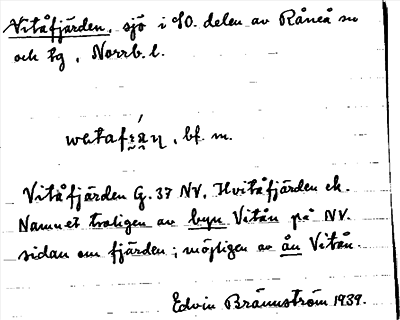 Vitåfjärden, sjö i SO. delen av Råneå sn
och tg, Norrb. l.
bf. m.
Vitåfjärden G. 37 NV, Hvitåfjärden ek.
Namnet troligen av byn Vitån på NV.
sidan om fjärden; möjligen av ån Vitån.
Edvin Brännström 1939.